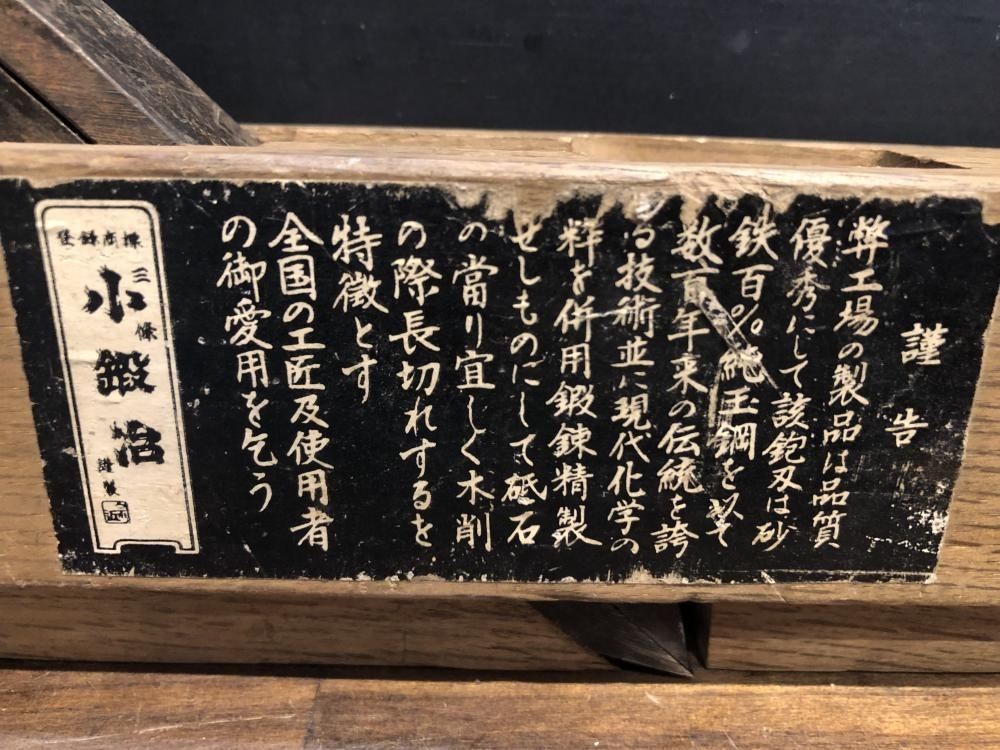 謹告
弊工場の製品は品質
優秀にして該鉋刃は砂
鉄百%純玉鋼を以て
数百年来の伝統を誇
る技術並に現代化学の
粹を併用鍛錬精製
せしものにして砥石
の當り宜しく木削
の際長切れするを
特徴とす
全国の工匠及使用者
の御愛用を乞う
登録商標
三條
小鍛冶
謹製